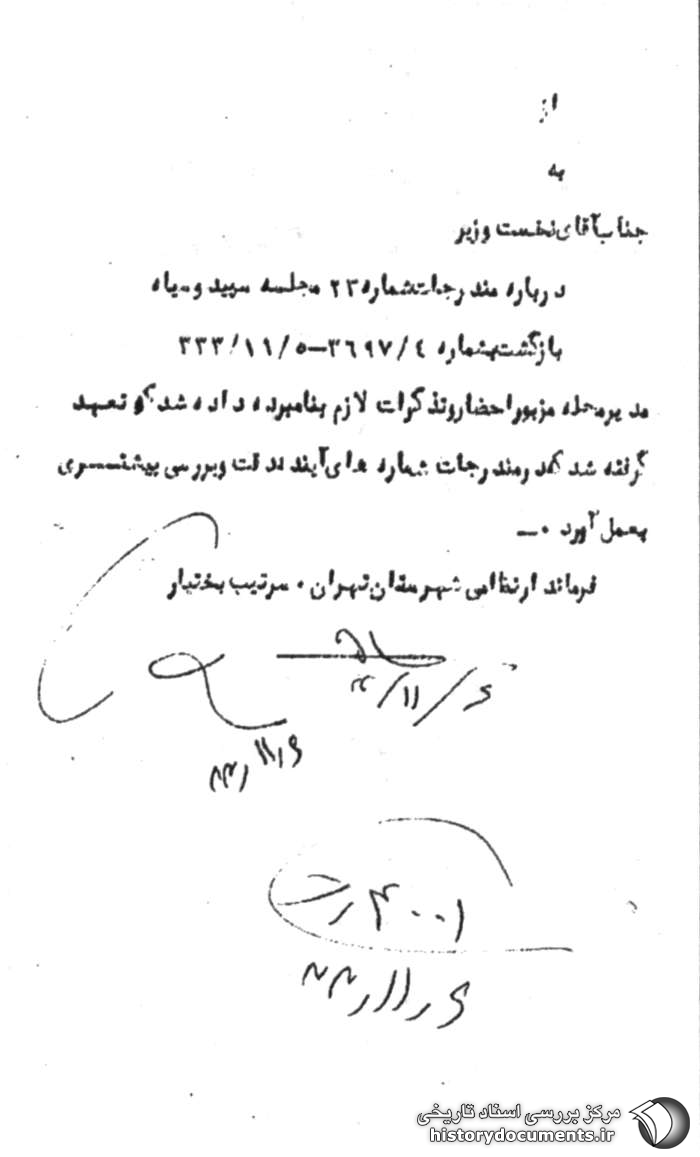 از
به
جناب آقای نخست وزیر
درباره مندرجات شماره ۲۳ مجلسه سپید و سیاه
بازگشت بشماره ۳۶۹۷/۴–۳۳۳/۱۱/۵
مدیر مجله مزبور احضار و تذکرات لازم بنامبرده داده شد که و تعهد
گرفته شد که در مندرجات شماره های آینده دقت و بررسی بیشتـــری
بعمل آورد ۰–
فرماندار نظامی شهرستان تهران ۰ سرتیپ بختیار
۶/۱۱/
۶ر۱۱ر۳۳
۴۰۰۱
۶ر۱۱ر۳۳
مرکز بررسی اسناد تاریخی
historydocuments.ir